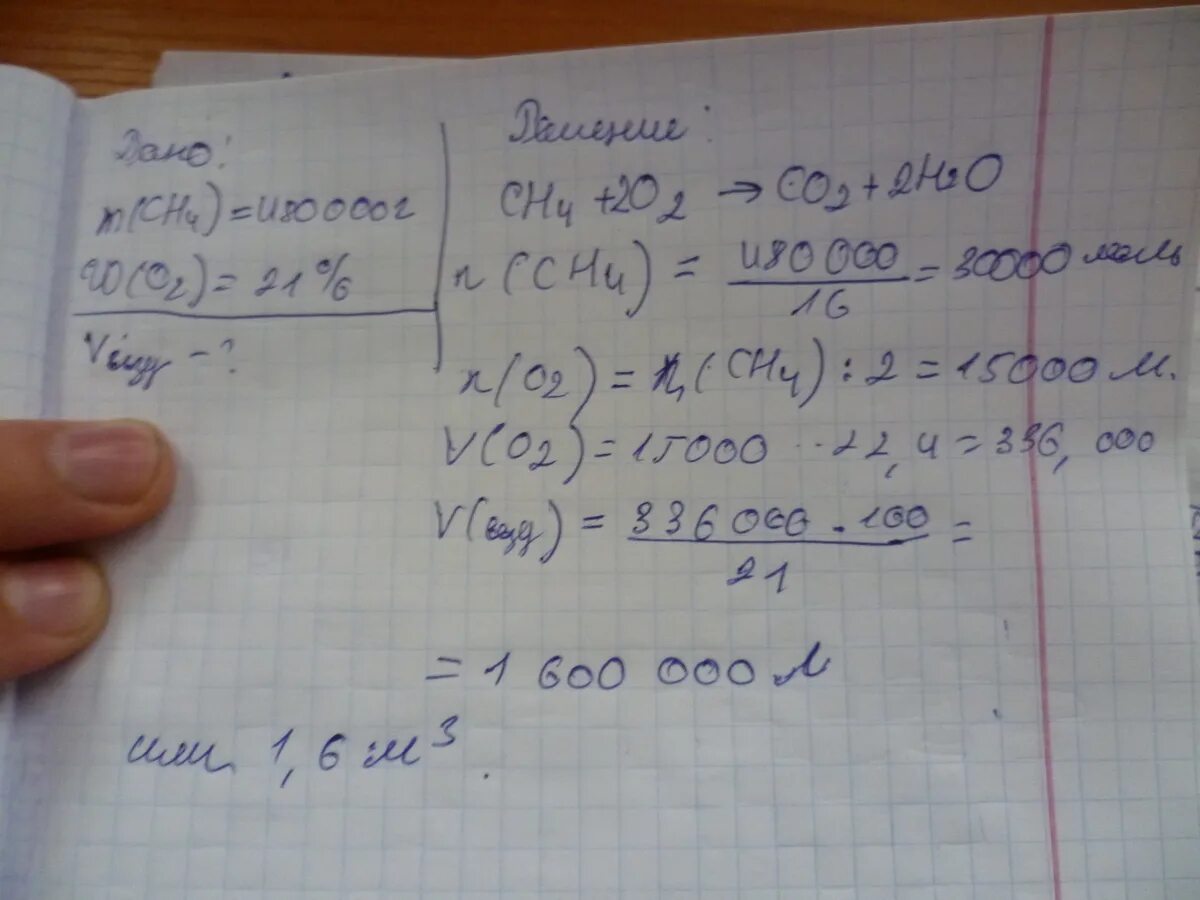 Дано:
m(CH4) = 480000г
W(O2) = 21%
Vвозд - ?
Решение:
CH4 + 2O2 → CO2 + 2H2O
n(CH4) = 480 000 / 16 = 30000 моль
n(O2) = n(CH4) : 2 = 15000 м.
V(O2) = 15000 · 22,4 = 336,000
V(взд) = 336 000 · 100 / 21 =
= 1 600 000 л
или 1,6 м³.